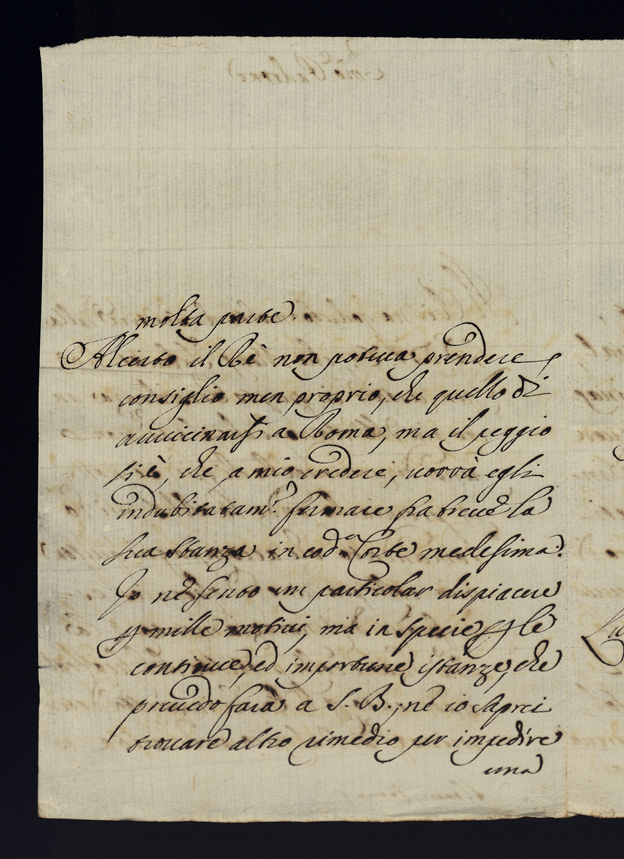 molta parte.
Al certo il Rè non poteva prendere
consiglio men proprio, che quello di
avvicinarsi a Roma, ma il peggio
si è, che a mio credere, vorrà egli
indubitatam.e fermare fra breve la
sua stanza in cod.a Corte medesima.
Io nè sento un particolar dispiacere
p mille motivi, ma in specie p le
continue, ed importune istanze, che
prevedo farà a S. B., nè io saprei
trovare altro rimedio per impedire
una